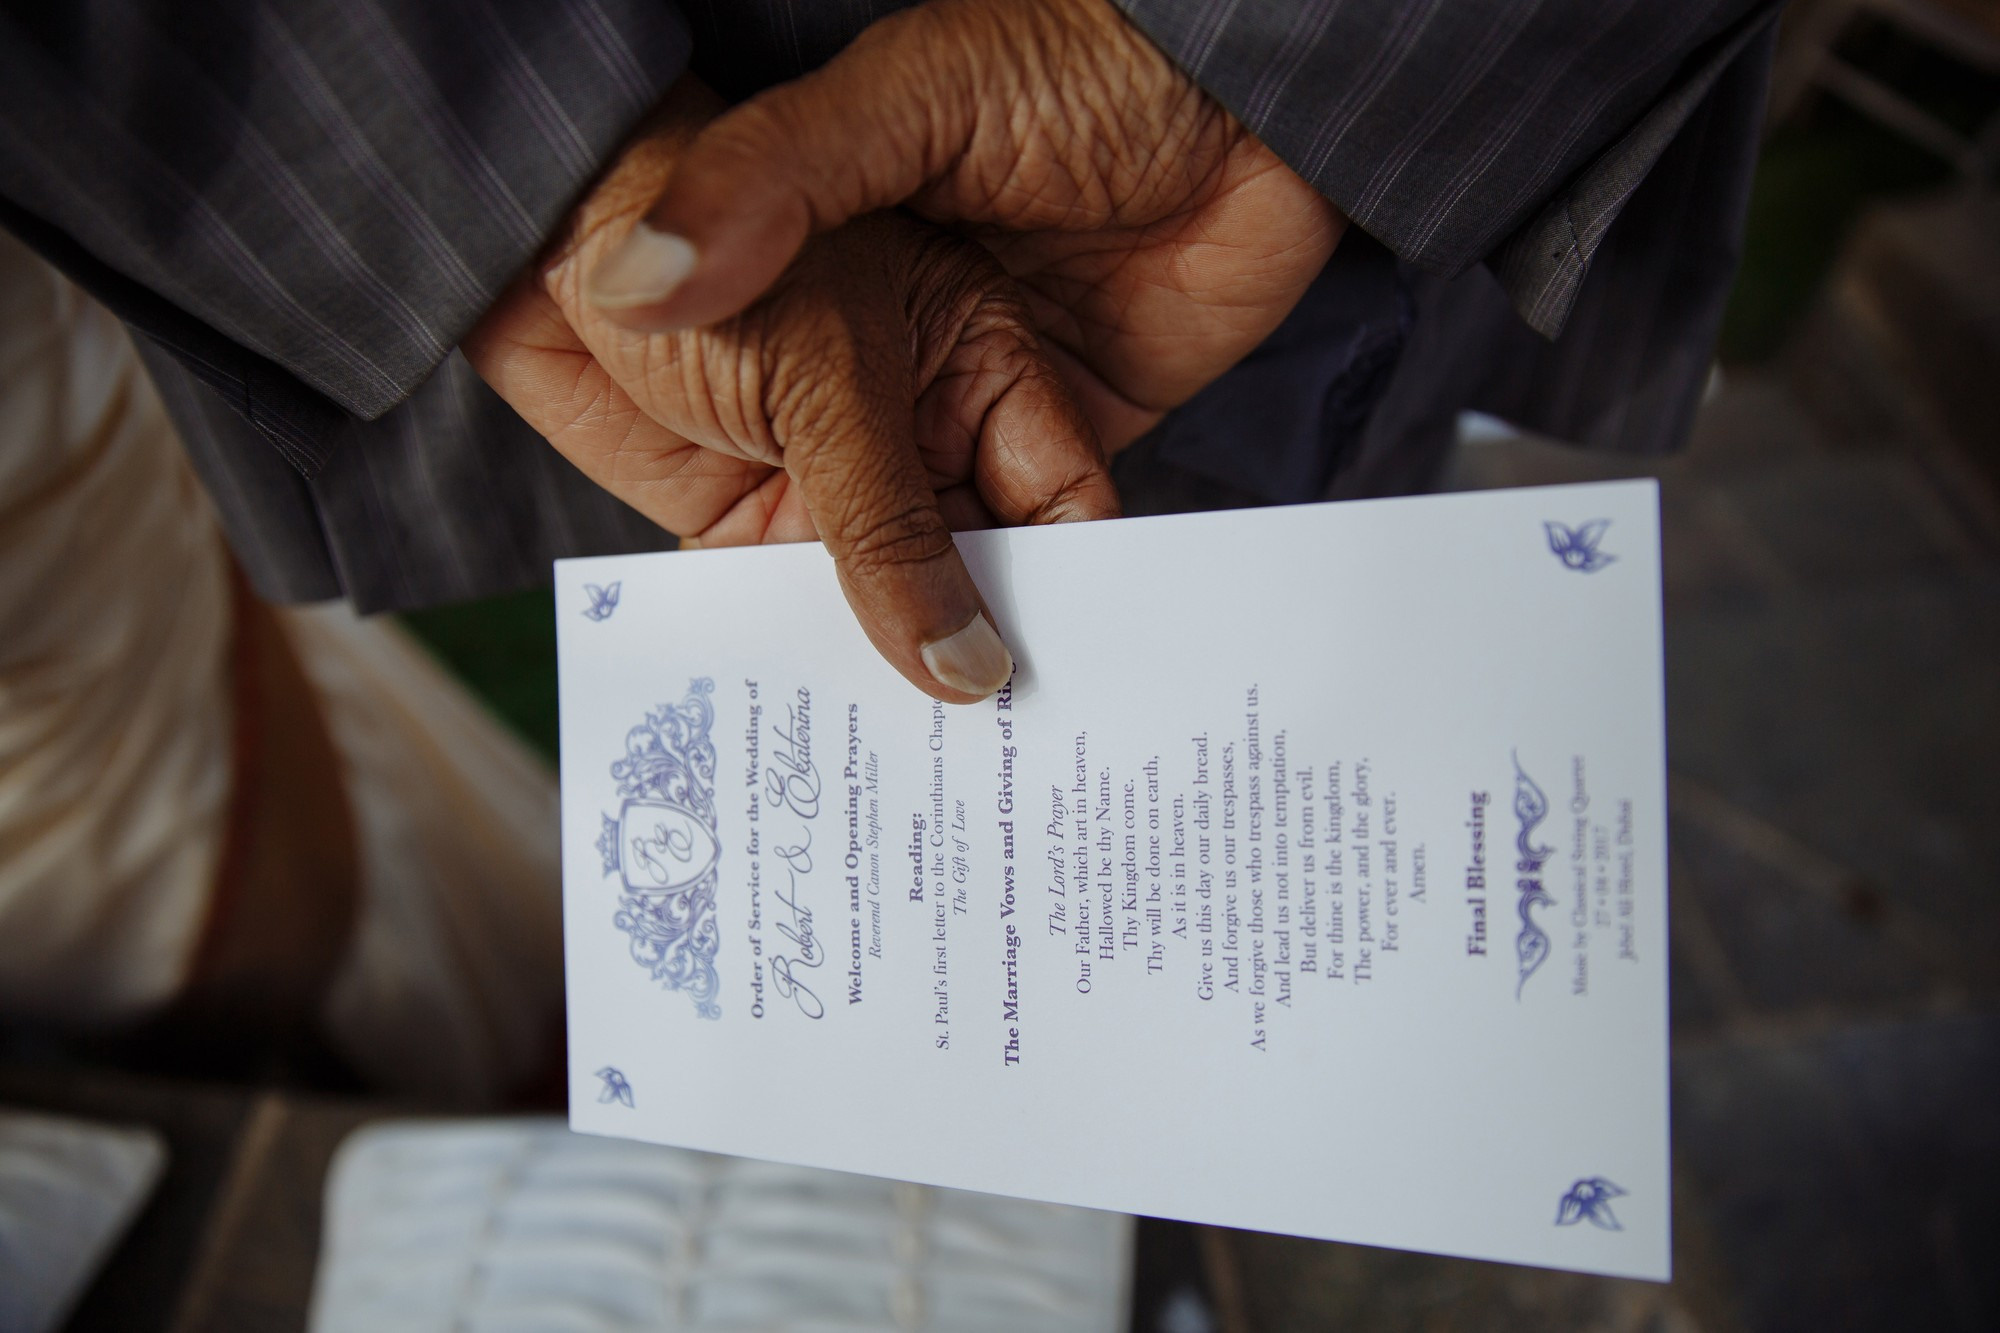 R E
Order of Service for the Wedding of
Robert & Ekaterina
Welcome and Opening Prayers
Reverend Canon Stephen Miller
Reading:
St. Paul's first letter to the Corinthians
The Gift of Love
The Marriage Vows and Giving of
The Lord's Prayer
Our Father, which art in heaven,
Hallowed be thy Name.
Thy Kingdom come.
Thy will be done on earth,
As it is in heaven.
Give us this day our daily bread.
And forgive us our trespasses,
As we forgive those who trespass against us.
And lead us not into temptation,
But deliver us from evil.
For thine is the kingdom,
The power, and the glory,
For ever and ever.
Amen.
Final Blessing
Music by Classical String Quartet
Jebel Ali Hotel, Dubai